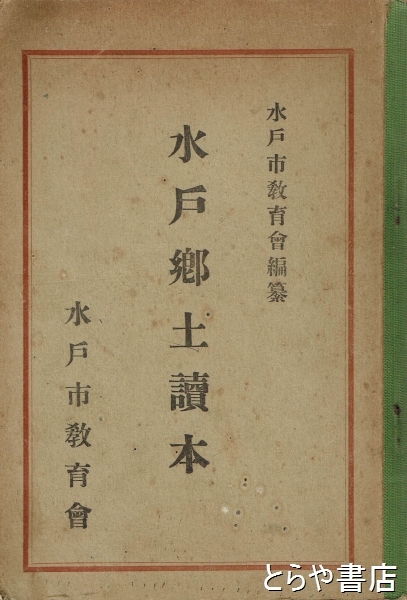 水戶市敎育會編纂
水戶鄕土讀本
水戶市敎育會
とらや書店